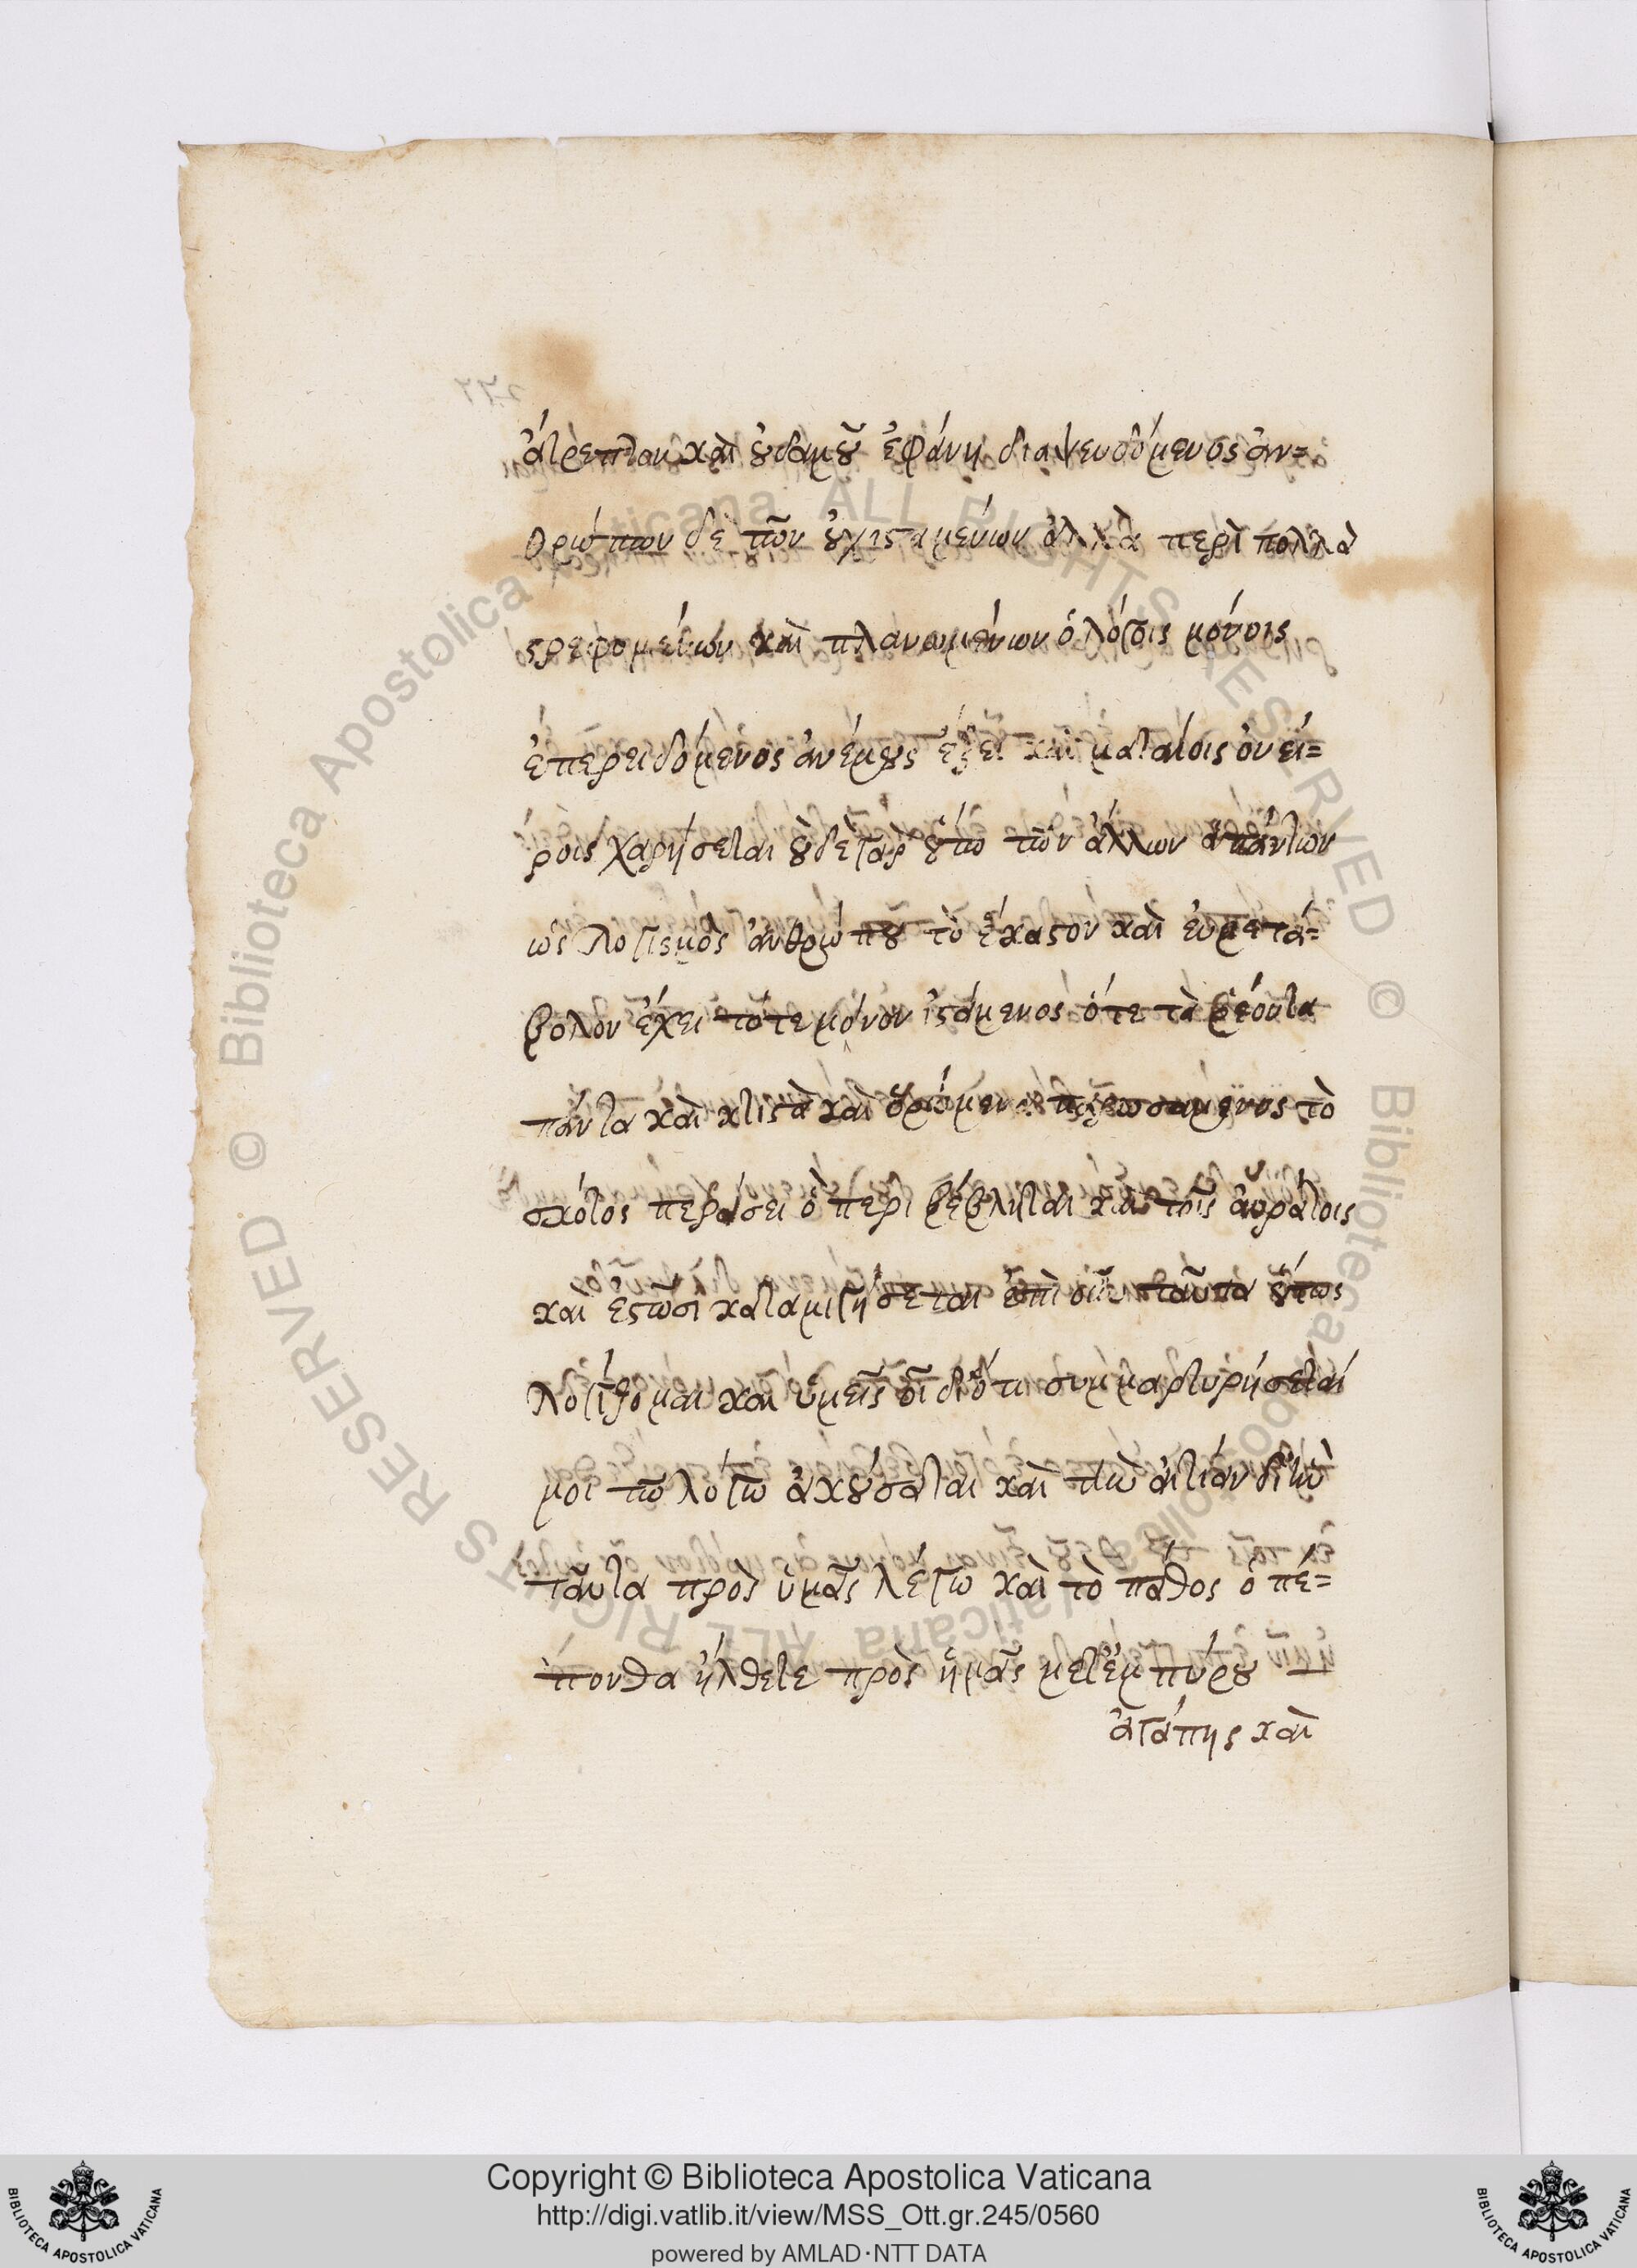 ἄτρεπτον καὶ οὐδαμοῦ ἐφάνη διαψευδόμενος ἀν=
θρώπων δὲ τῶν οὐχ ἱσταμένων ἀλλὰ περὶ πολλὰ
στρεφομένων καὶ πλανωμένων ὁ λόγοις μόνοις
ἐπερειδόμενος ἀνέμους ἕξει καὶ ματαίοις ὀνεί=
ροις χαρήσεται οὐδὲ γὰρ οὕτω τῶν ἄλλων ἁπάντων
ὡς λογισμὸς ἀνθρώπου τὸ ἄστατον καὶ εὐμετά=
βολον ἔχει τότε μόνον ἱστάμενος ὅτε τὰ ῥέοντα
πάντα καὶ κτιστὰ καὶ ὁρώμενα τὸ
σκότος περάσει ὃ περιβέβληται καὶ τοῖς ἀοράτοις
καὶ ἑστῶσι καταμιγήσεται ἐπεὶ οὖν ταῦτα οὕτως
λογίζομαι καὶ ὑμεῖς οἶδ' ὅτι συμμαρτυρήσεταί
μοι τῷ λόγῳ ἀκούσαται καὶ τὴν αἰτίαν δι' ἣν
ταῦτα πρὸς ὑμᾶς λέγω καὶ τὸ πάθος ὃ πέ=
πονθα ἤλθετε πρὸς ἡμᾶς μετ' ἐμπύρου
ἀγάπης καὶ
Copyright © Biblioteca Apostolica Vaticana
http://digi.vatlib.it/view/MSS_Ott.gr.245/0560
powered by AMLAD·NTT DATA
BIBLIOTECA APOSTOLICA VATICANA
BIBLIOTECA APOSTOLICA VATICANA
© Biblioteca Apostolica Vaticana ALL RIGHTS RESERVED
© Biblioteca Apostolica Vaticana ALL RIGHTS RESERVED